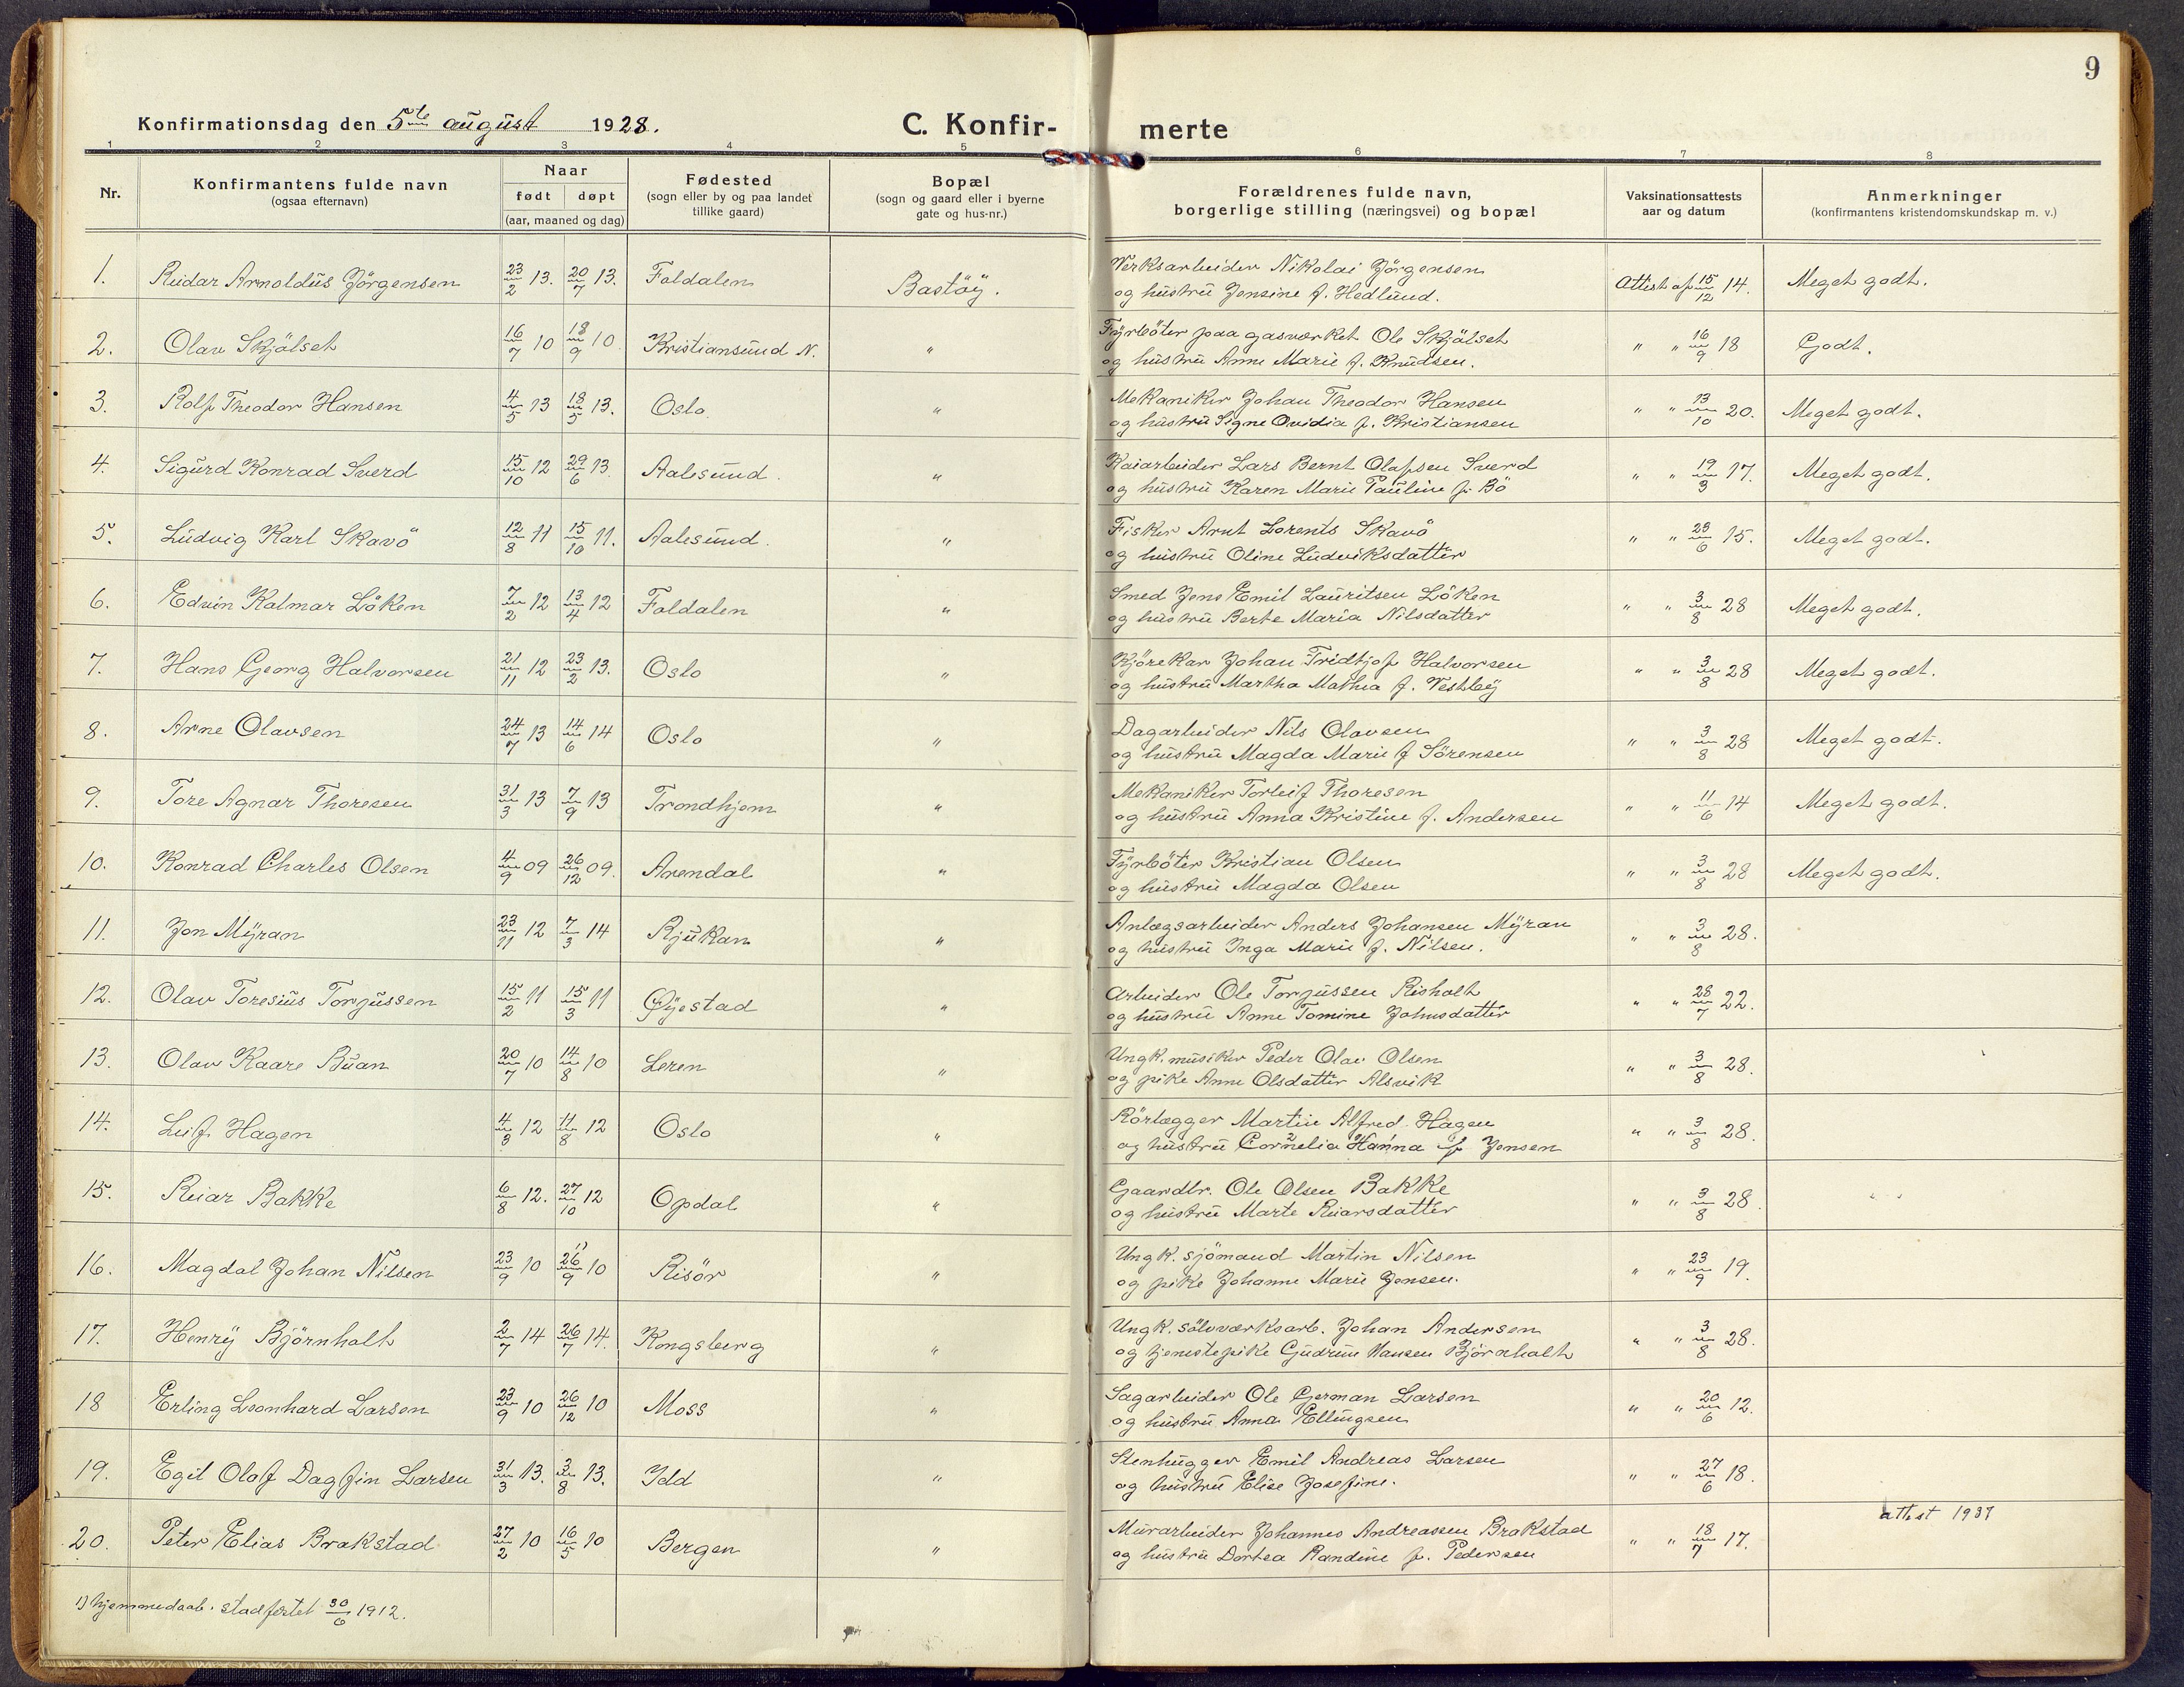 9
Konfirmationsdag den 5te august 1928.
C. Konfirmerte
1 2 3 4 5 6 7 8
Nr. | Konfirmantens fulde navn (ogsaa efternavn) | Naar født døpt (aar, maaned og dag) | Fødested (sogn eller by og paa landet tillike gaard) | Bopæl (sogn og gaard eller i byerne gate og hus-nr.) | Forældrenes fulde navn, borgerlige stilling (næringsvei) og bopæl | Vaksinationsattests aar og datum | Anmerkninger (konfirmantens kristendomskundskap m. v.)
1. Reidar Arnoldus Jörgensen 23/2 13. 20/7 13. Foldalen Bastöy. Verksarbeider Nikolai Jörgensen
og hustru Jensine f. Hedlund. Attest af 15/12 14. Meget godt.
2. Olav Skjölset 16/7 10 18/9 10 Kristiansund N. " Fyrböter paa gasverket Ole Skjölset
og hustru Anne Marie f. Knudsen. " " 16/9 18 Godt.
3. Rolf Theodor Hansen 4/5 13 18/5 13. Oslo. " Mekaniker Johan Theodor Hansen
og hustru Signe Ovidia f. Kristiansen " " 13/10 20. Meget godt.
4. Sigurd Konrad Sverd 15/10 12 29/6 13 Aalesund. " Kaiarbeider Lars Bernt Olafsen Sverd
og hustru Karen Marie Pauline f. Bö " " 19/3 17. Meget godt.
5. Ludvig Karl Skavö 12/8 11 15/10 11. Aalesund. " Fisker Arnt Lorents Skavö
og hustru Oline Ludviksdatter " " 28/6 15. Meget godt.
6. Edvin Kalmar Löken 7/2 12 13/4 12 Foldalen " Smed Jens Emil Lauritsen Löken
og hustru Berte Maria Nilsdatter " " 3/8 28 Meget godt.
7. Hans Georg Halvorsen 21/11 12 23/2 13. Oslo " Kjörekar Johan Fridtjof Halvorsen
og hustru Martha Mathea f. Vestby " " 3/8 28 Meget godt.
8. Arne Olavsen 24/7 13 14/6 14 Oslo " Dagarbeider Nils Olavsen
og hustru Magda Marie f Sörensen " " 3/8 28 Meget godt.
9. Tore Agnar Thoresen 31/3 13 7/9 13 Trondhjem " Mekaniker Torleif Thoresen
og hustru Anna Kristine f. Andersen " " 11/6 14 Meget godt.
10. Konrad Charles Olsen 4/9 09 26/12 09. Arendal " Fyrböter Kristian Olsen
og hustru Magda Olsen " " 3/8 28 Meget godt.
11. Jon Myran 23/11 12 7/3 14 Rjukan " Anlægsarbeider Anders Johansen Myran
og hustru Inga Marie f. Nilsen. " " 3/8 28.
12. Olav Toresius Torjussen 15/2 11 15/3 11 Øyestad " Arbeider Ole Torjussen Risholt
og hustru Anne Tomine Johnsdatter " " 28/7 22.
13. Olav Kaare Buan 20/7 10 14/8 10 Leren " Ungk. musiker Peder Olav Olsen
og pike Anne Olsdatter Alsvik " " 3/8 28.
14. Leif Hagen 4/3 12 11/8 12 Oslo " Rörlægger Martin Alfred Hagen
og hustru Cornelia Hanna f Jensen " " 3/8 28.
15. Reiar Bakke 6/8 12. 27/10 12 Opdal " Gaardbr. Ole Olsen Bakke
og hustru Marte Reiarsdatter " " 3/8 28.
16. Magdal Johan Nilsen 23/9 10 26/9 1) 10 Risör " Ungk. sjömand Martin Nilsen
og pike Johanne Marie Jensen. " " 23/9 19.
17. Henry Björnholt 2/7 14 26/7 14. Kongsberg " Ungk. sölvværksarb. Johan Andersen
og tjenestepike Gudrun Hansen Björnholt " " 3/8 28.
18 Erling Leonhard Larsen 23/9 10 26/12 10 Moss " Sagarbeider Ole German Larsen
og hustru Anna Ellingsen " " 20/6 12.
19. Egil Olaf Dagfin Larsen 31/3 13. 3/8 13. Idd " Stenhugger Emil Andreas Larsen
og hustru Elise Josefine. " " 27/6 18.
20. Peter Elias Brakstad 27/2 10 16/5 10 Bergen " Murarbeider Johannes Andreassen Brakstad
og hustru Dortea Randine f. Pedersen " " 18/7 17. attest 1937
1) hjemmedaab. stadfestet 30/6 1912.